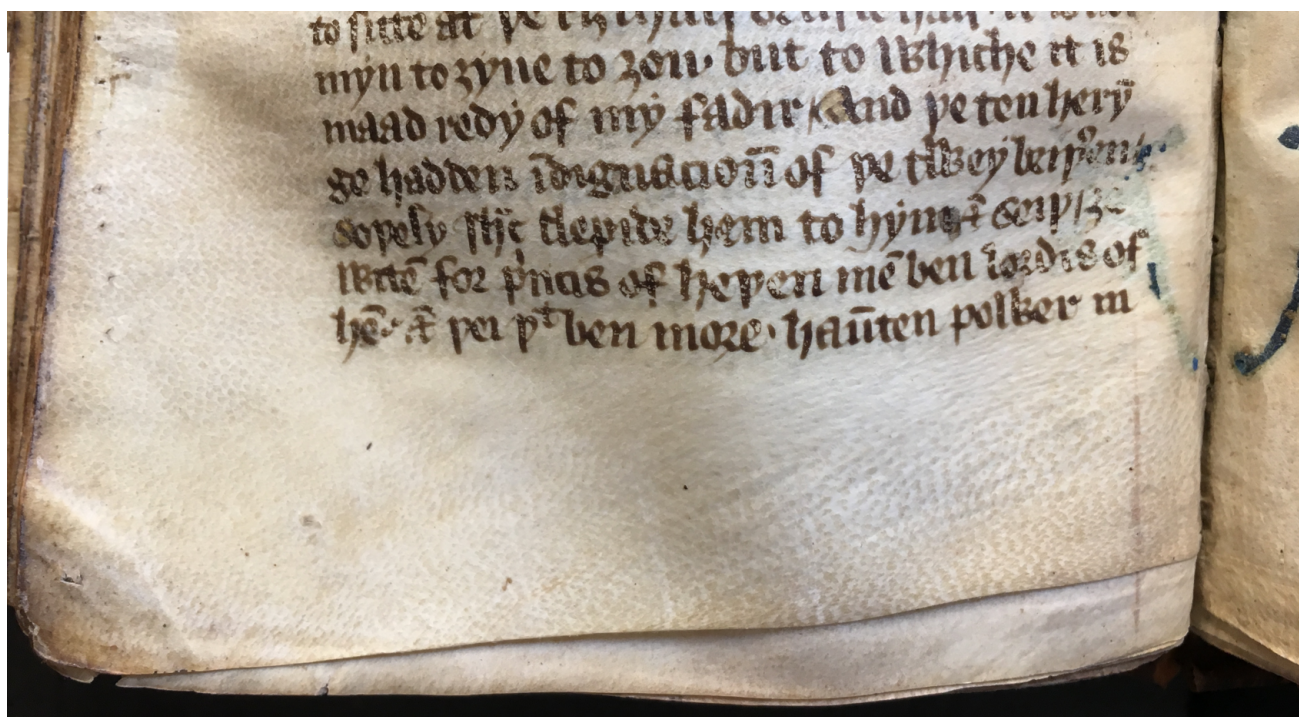 to sitte at þe riȝthalf
myn to ȝyue to ȝou· but to whiche it is
maad redy of my fadir / And þe ten herẏ
ge hadden īdignacioūn of þe tweẏ breþ̉en
soþely ih̄c clepide hem to hym ⁊ seiþ / ȝe
witē for pⁱncis of heþen mē ben lordis of
hē· ⁊ þei þᵗ ben more· haūten power in